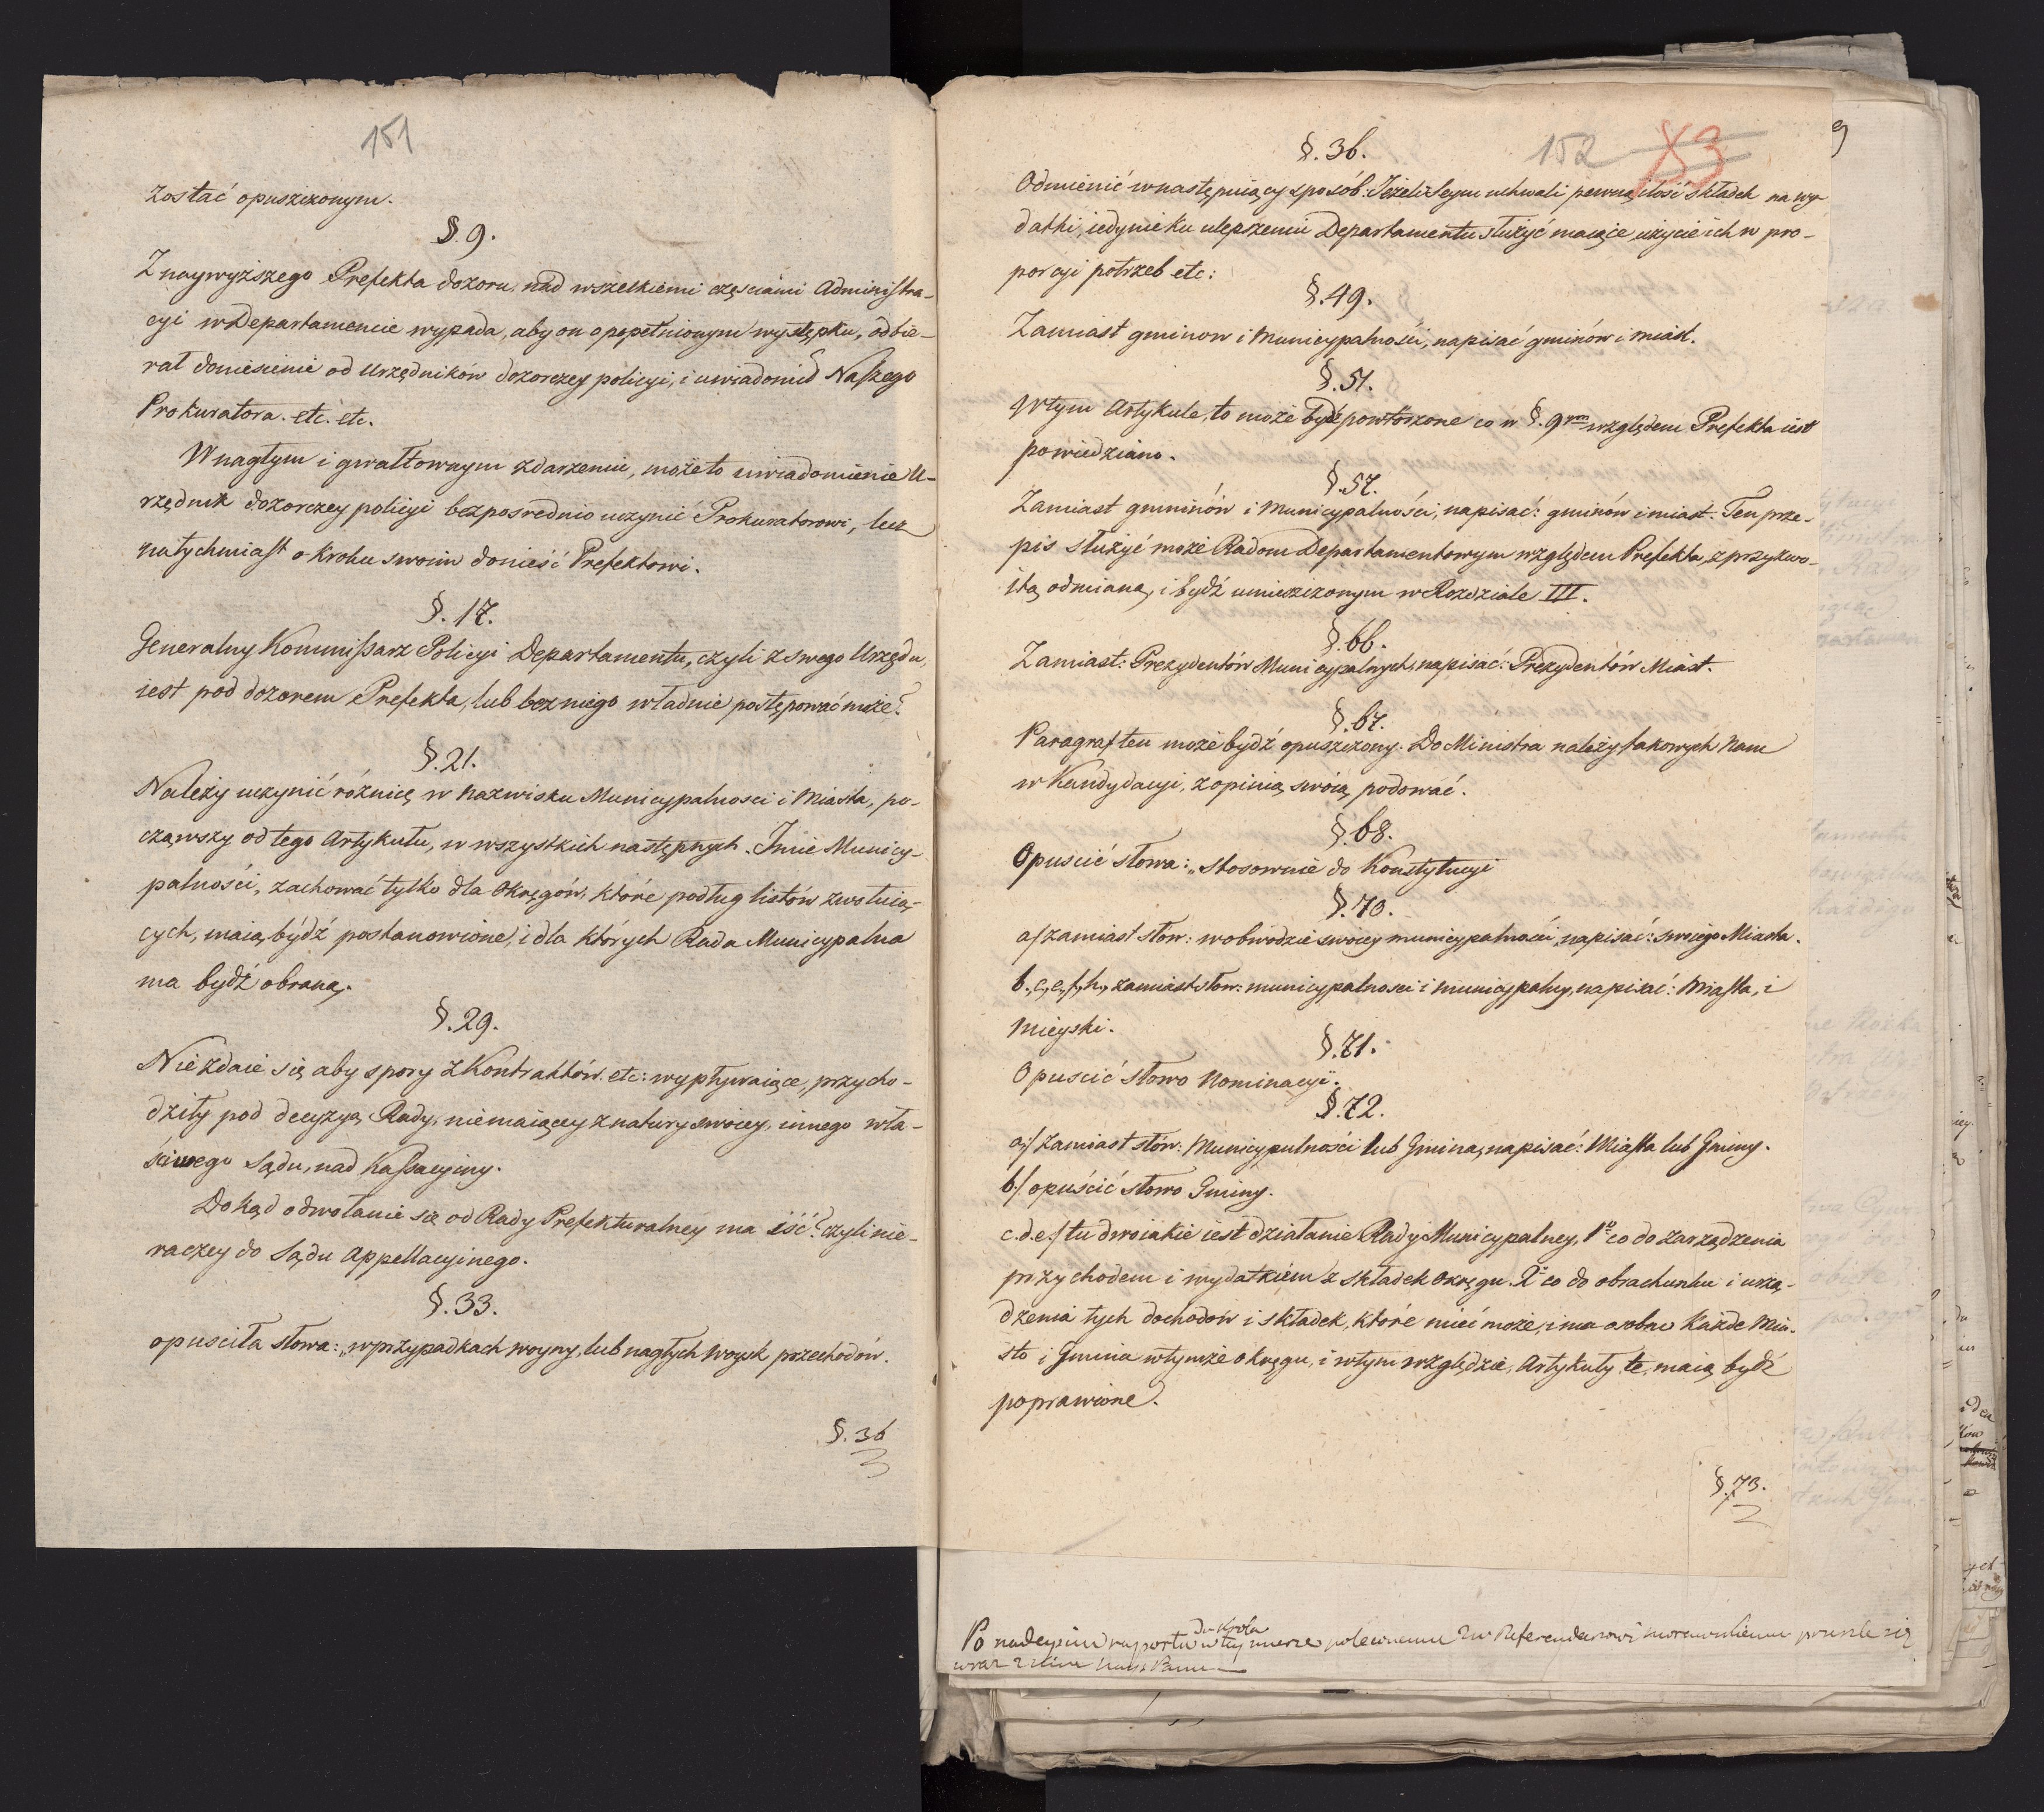 151
zostać opuszczonym.
§. 9.
Z naywyższego Prefekta dozoru, nad wszelkiemi częsciami Administra-
cyi w Departamencie wypada, aby on o popełnionym występku, odbie-
rał doniesienie od Urzędników dozorczey policyi, i uwiadomił Naszego
Prokuratora. etc. etc.
W nagłym i gwałtownym zdarzeniu, może to uwiadomienie U-
rzędnik dozorczey policyi bezposrednio uczynić Prokuratorowi, lecz
natychmiast o kroku swoim donieść Prefektowi.
§. 17.
Generalny Kommissarz Policyi Departamentu, czyli z swego Urzędu,
iest pod dozorem Prefekta, lub bez niego władnie postępować może?
§. 21.
Należy uczynić różnicę w nazwisku Municypalnosci i Miasta, po-
cząwszy od tego Artykułu, w wszystkich następnych. Imie Municy-
palności, zachować tylko dla Okręgów, które podług listów zwołuią-
cych, maią bydź postanowione, i dla których Rada Municypalna
ma bydź obraną.
§. 29.
Nie zdaie się aby spory z Kontraktów. etc: wypływaiące, przycho-
dziły pod decyzyą Rady, niemaiącey z natury swoiey, innego wła-
ściwego Sądu, nad Kassacyiny.
Dokąd odwołanie się od Rady Prefekturalney ma iść? czyli nie-
raczey do Sądu Appellacyinego.
§. 33.
opuscita słowa: „w przypadkach woyny, lub nagłych woysk przechodów.
§. 36
152 83
§. 36.
Odmienić w następuiący sposób: Jeżeli Seym uchwali pewną ilość składek na wy-
datki, iedynie ku ulepszeniu Departamentu służyć maiące, użycie ich w pro-
porcyi potrzeb etc:
§. 49.
Zamiast gminow i Municypalności, napisać gminów i miast.
§. 51.
W tym Artykule, to może bydź powtórzone co w §. 9ym względem Prefekta iest
powiedziano.
§. 57.
Zamiast gminów i Municypalności, napisać: gminów i miast. Ten prze-
pis służyć może Radom Departamentowym względem Prefekta, z przyzwo-
itą odmianą, i bydź umieszczonym w Rozdziale III.
§. 66.
Zamiast: Prezydentów Municypalnych, napisać: Prezydentów Miast.
§. 67.
Paragraf ten może bydź opuszczony. Do Ministra należy takowych Nam
w Kandydacyi, z opinią swoią podować.
§. 68.
Opuscić słowa: „stosownie do Konstytucyi
§. 70.
a/ zamiast słow: w obwodzie swoiey municypalności, napisać: swoiego Miasta.
b., c, e, f, h., zamiast słow: municypalnosci i municypalny, napisać: Miasta, i
Mieyski.
§. 71.
Opuscić słowo Nominacyi.
§. 72.
a/ Zamiast słów: Municypalności lub Gmina, napisać: Miasta lub Gminy.
b./ opuścić słowo Gminy.
c. d. e./ tu dwoiakie iest działanie Rady Municypalney, 1o co do zarządzenia
przychodem i wydatkiem z składek Okręgu. 2o co do obrachunku i urzą-
dzenia tych dochodów i składek, które mieć może, i ma osobno każde Mia-
sto i Gmina w tymże okręgu, i w tym względzie, Artykuły te, maią bydź
poprawione.
§. 73.
do Króla
Po nadeyściu raportu w tey mierze Referendarowi
wraz